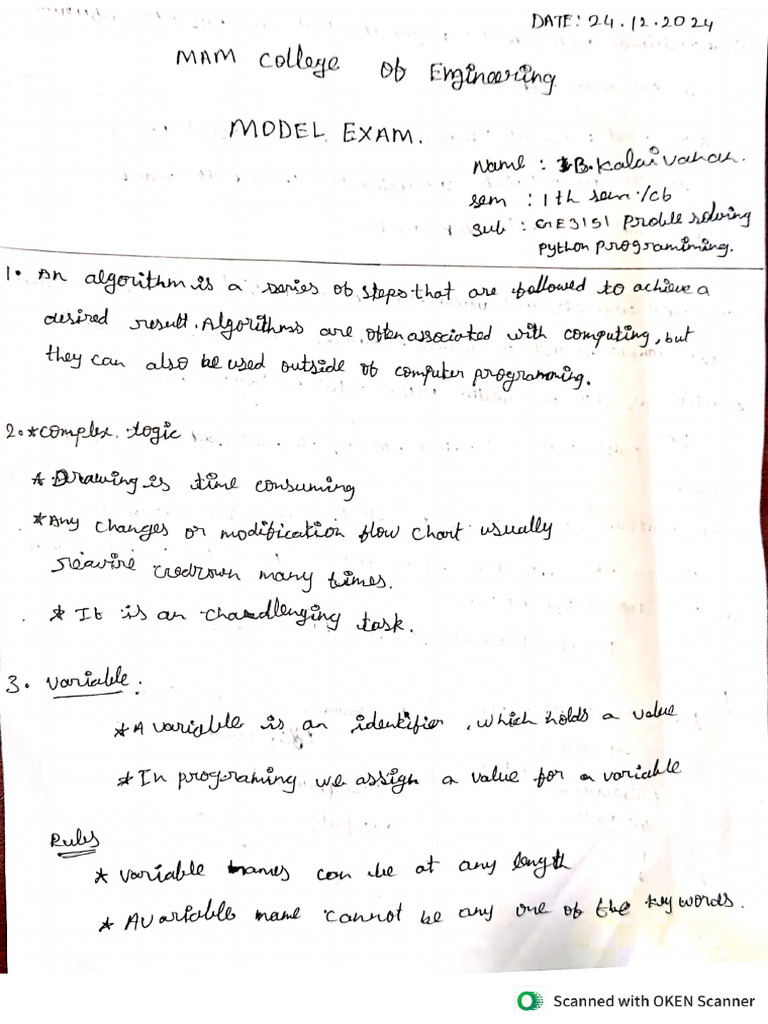 DATE: 24.12.2024
MAM College of Engineering
MODEL EXAM.
Name : B. Kalaivanan.
sem : 1 th sem./cb
Sub : GE3151 Proble solving
python programiming.
1. An algorithm is a series of steps that are followed to achieve a
desired result. Algorithms are often associated with computing, but
they can also be used outside of computer programming.
2. *complex logic
* Drawing is time consuming
*Any changes or modification flow chart usually
reavire redrown many times.
* It is an challenging task.
3. Variable.
*A variable is an identifier, which holds a value
*In programing we assign a value for a variable
Rules
* variable names can be at any length
* A variable name cannot be any one of the key words.
Scanned with OKEN Scanner